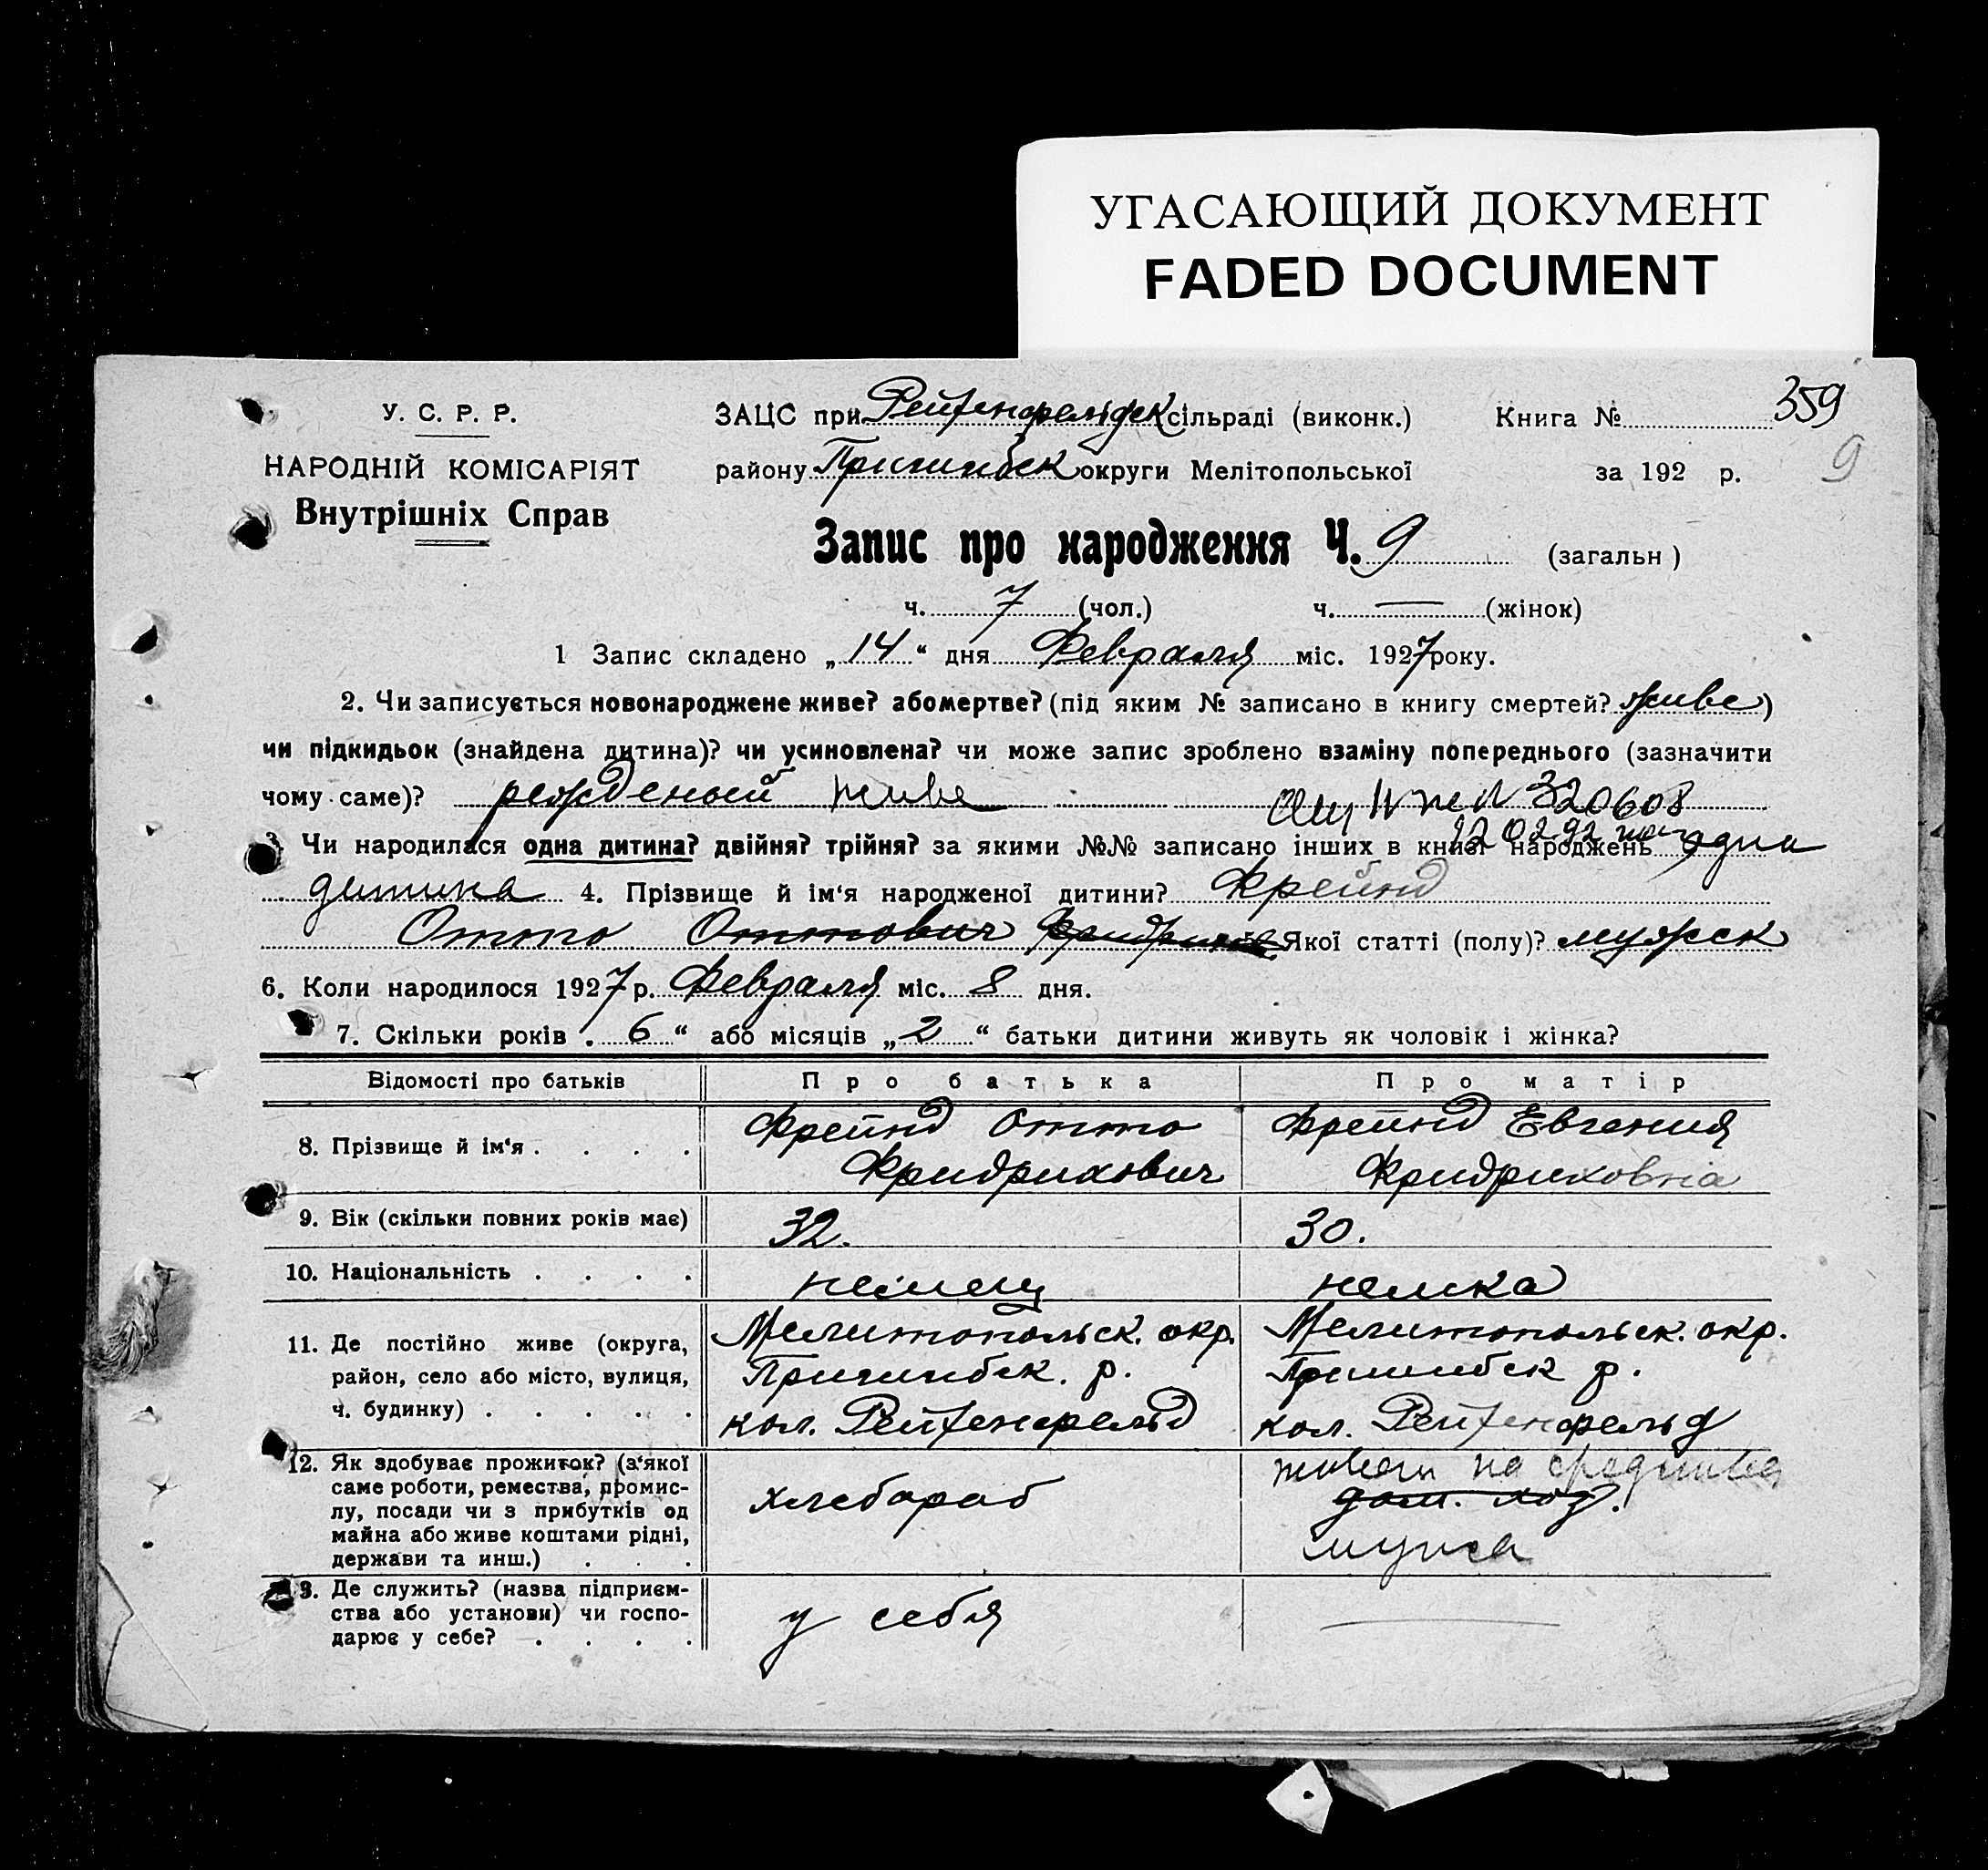 УГАСАЮЩИЙ ДОКУМЕНТ
FADED DOCUMENT
359
9
У. С. Р. Р.
НАРОДНІЙ КОМІСАРІЯТ
Внутрішніх Справ
ЗАЦС при Рейхенфельдск сільраді (виконк.) Книга №
району Пришибск округи Мелітопольської за 192 р.
Запис про народження Ч. 9 (загальн)
ч. 7 (чол.) ч. — (жінок)
1 Запис складено „14“ дня Февраля міс. 1927 року.
2. Чи записується новонароджене живе? або мертве? (під яким № записано в книгу смертей? живе)
чи підкидьок (знайдена дитина)? чи усиновлена? чи може запис зроблено взаміну попереднього (зазначити
чому саме)? живе 320608
3 Чи народилася одна дитина? двійня? трійня? за якими №№ записано інших в книзі народжень одна
дитина 4. Прізвище й ім‘я народженої дитини? Фрейнд
Отто Оттович 5. Якої статті (полу)? мужск
6. Коли народилося 1927 р. Февраля міс. 8 дня.
7. Скільки років . 6 “ або місяців „ 2 “ батьки дитини живуть як чоловік і жінка?
Відомості про батьків Про батька Про матір
8. Прізвище й ім‘я . . . . Фрейнд Отто Фридрихович Фрейнд Евгения Фридриховна
9. Вік (скільки повних років має) 32. 30.
10. Національність . . . . немец немка
11. Де постійно живе (округа, Мелитопольск. окр. Мелитопольск. окр.
район, село або місто, вулиця, Пришибск. р. Пришибск р.
ч. будинку) . . . . . кол. Рейхенфельд кол. Рейхенфельд
12. Як здобуває прожиток? (з‘якої
саме роботи, ремества, промис-
лу, посади чи з прибутків од
майна або живе коштами рідні,
держави та инш.) . . .
хлебороб
на средства
дом. хоз.
мужа
13. Де служить? (назва підприєм-
ства або установи) чи госпо-
дарює у себе? . . . .
у себя